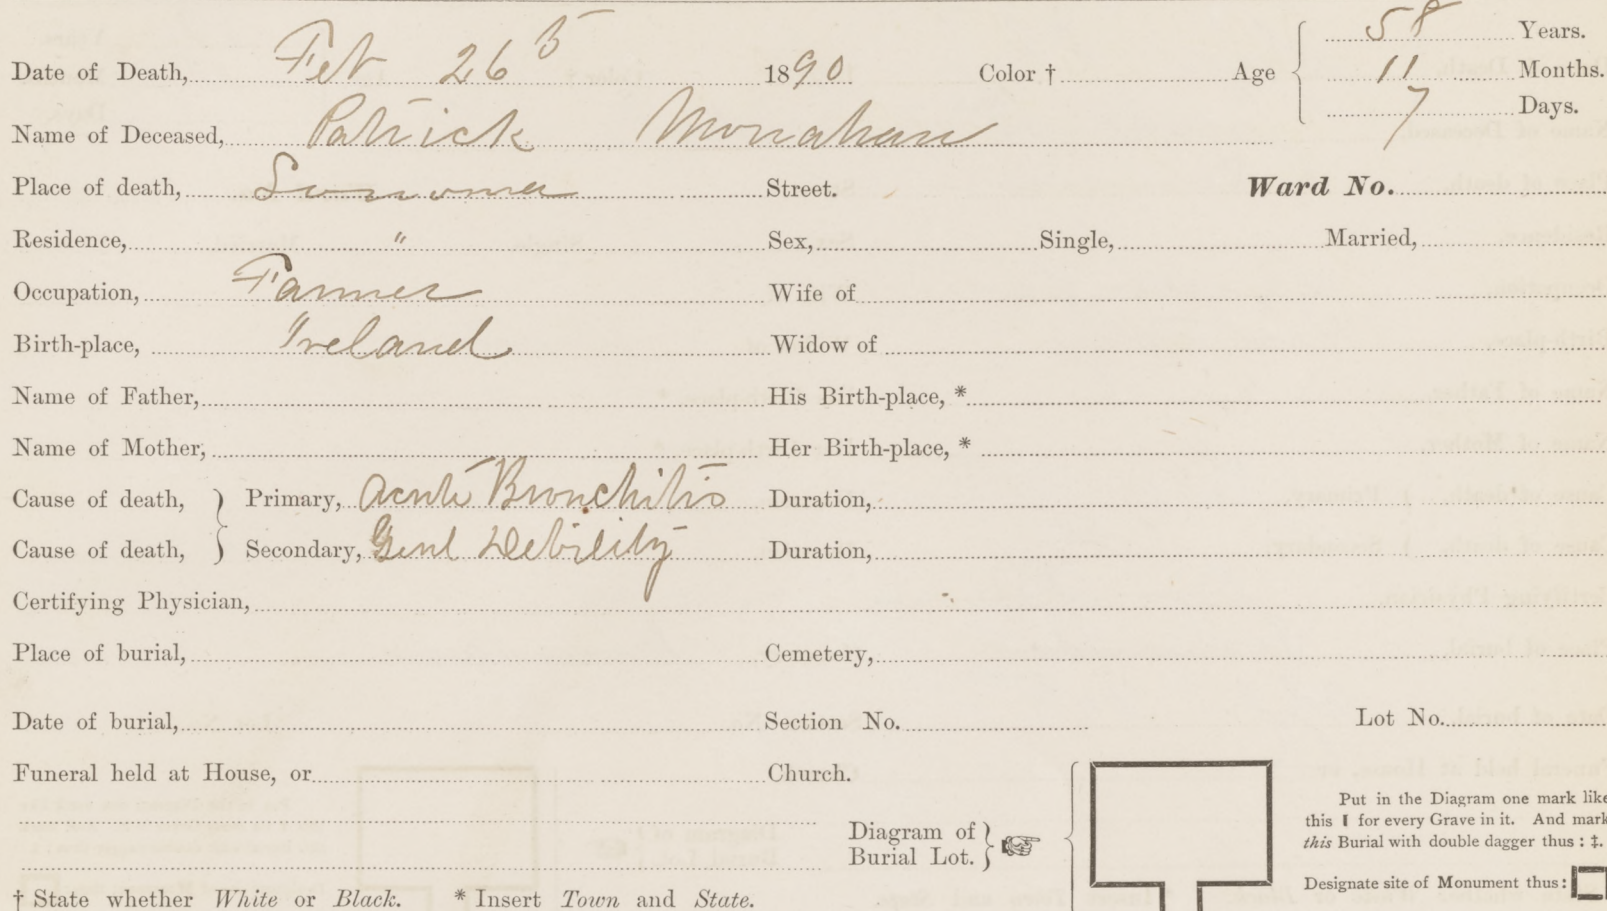 58 Years.
Date of Death, Feb 26 1890 Color † Age 11 Months.
7 Days.
Name of Deceased, Patrick Monahan
Place of death, Sonoma Street. Ward No.
Residence, " Sex, Single, Married,
Occupation, Farmer Wife of
Birth-place, Ireland Widow of
Name of Father, His Birth-place, *
Name of Mother, Her Birth-place, *
Cause of death, } Primary, Acute Bronchitis Duration,
Cause of death, } Secondary, Genl Debility Duration,
Certifying Physician,
Place of burial, Cemetery,
Date of burial, Section No. Lot No.
Funeral held at House, or Church.
Put in the Diagram one mark like
this I for every Grave in it. And mark
this Burial with double dagger thus : ‡.
Diagram of
Burial Lot. }
Designate site of Monument thus:
† State whether White or Black. * Insert Town and State.